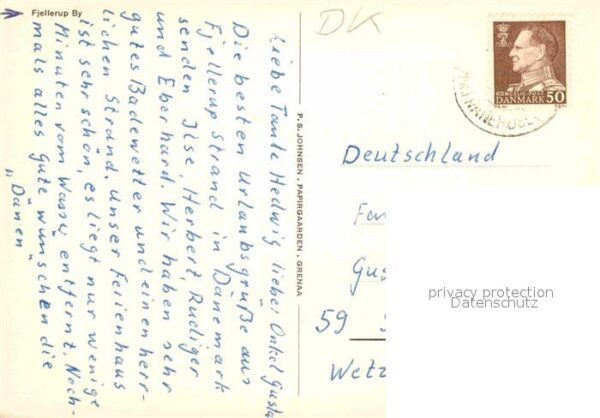 Fjellerup By
Liebe Tante Hedwig lieber Onkel Gustav
Die besten Urlaubsgrüße aus
Fjellerup Strand in Dänemark
senden Ilse, Herbert, Rüdiger
und Eberhard. Wir haben sehr
gutes Badewetter und einen herr-
lichen Strand. Unser Ferienhaus
ist sehr schön, es liegt nur wenige
Minuten vom Wasser entfernt. Noch-
mals alles Gute wünschen die
"Dänen"
P. S. JOHNSEN. PAPIRGAARDEN. GRENAA
DK
KONGELIG POST
DANMARK 50
Deutschland
Fam
Gus
59
Wetz
privacy protection
Datenschutz